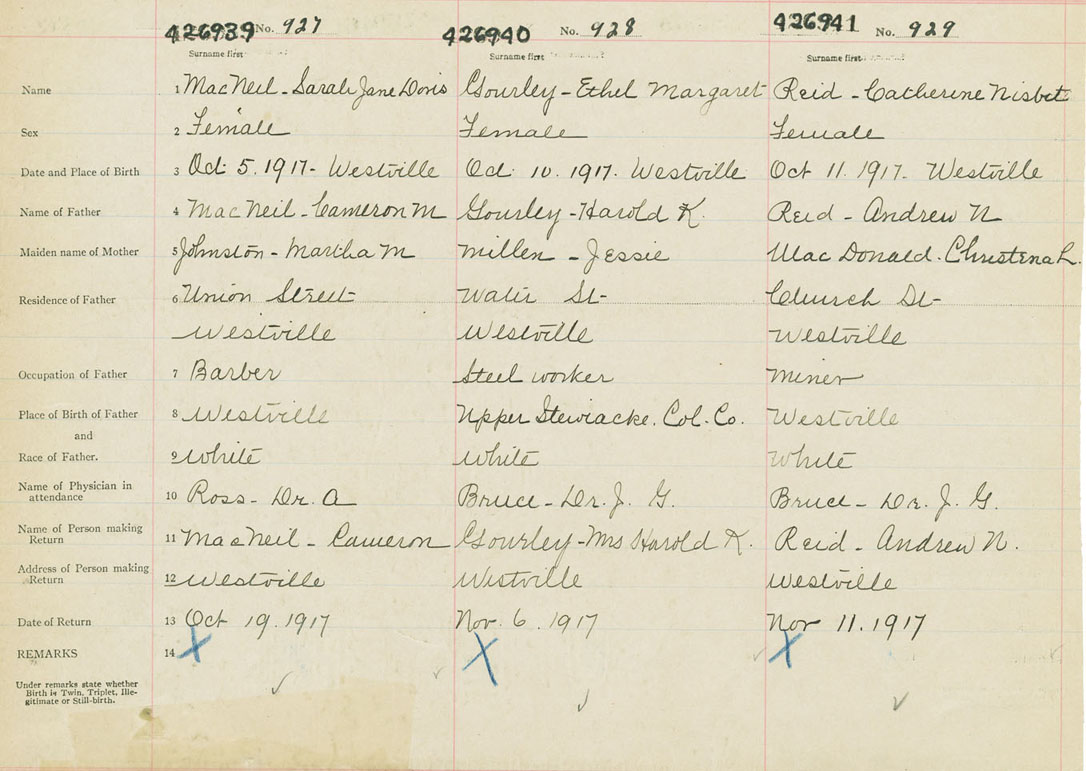 426939 No. 927 426940 No. 928 426941 No. 929
Surname first Surname first Surname first
Name 1 MacNeil - Sarah Jane Doris Gourley - Ethel Margaret Reid - Catherine Nisbet
Sex 2 Female Female Female
Date and Place of Birth 3 Oct 5. 1917 - Westville Oct 10. 1917. Westville Oct 11. 1917 - Westville
Name of Father 4 MacNeil - Cameron M Gourley - Harold K. Reid - Andrew N
Maiden name of Mother 5 Johnston - Martha M Millen - Jessie MacDonald. Christena L.
Residence of Father 6 Union Street Water St - Church St -
Westville Westville Westville
Occupation of Father 7 Barber Steel worker Miner
Place of Birth of Father 8 Westville Upper Stewiacke. Col. Co. Westville
and
Race of Father. 9 White White White
Name of Physician in
attendance 10 Ross - Dr. A Bruce - Dr. J. G. Bruce - Dr. J. G.
Name of Person making
Return 11 MacNeil - Cameron Gourley - Mrs Harold K. Reid - Andrew N.
Address of Person making
Return 12 Westville Westville Westville
Date of Return 13 Oct 19. 1917 Nov. 6. 1917 Nov 11. 1917
REMARKS 14 X X X
Under remarks state whether
Birth is Twin, Triplet, Ille-
gitimate or Still-birth.